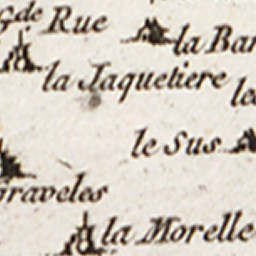 Gde Rue
la Bar
la Jaquetiere
le
le Sus
graveles
la Morelle